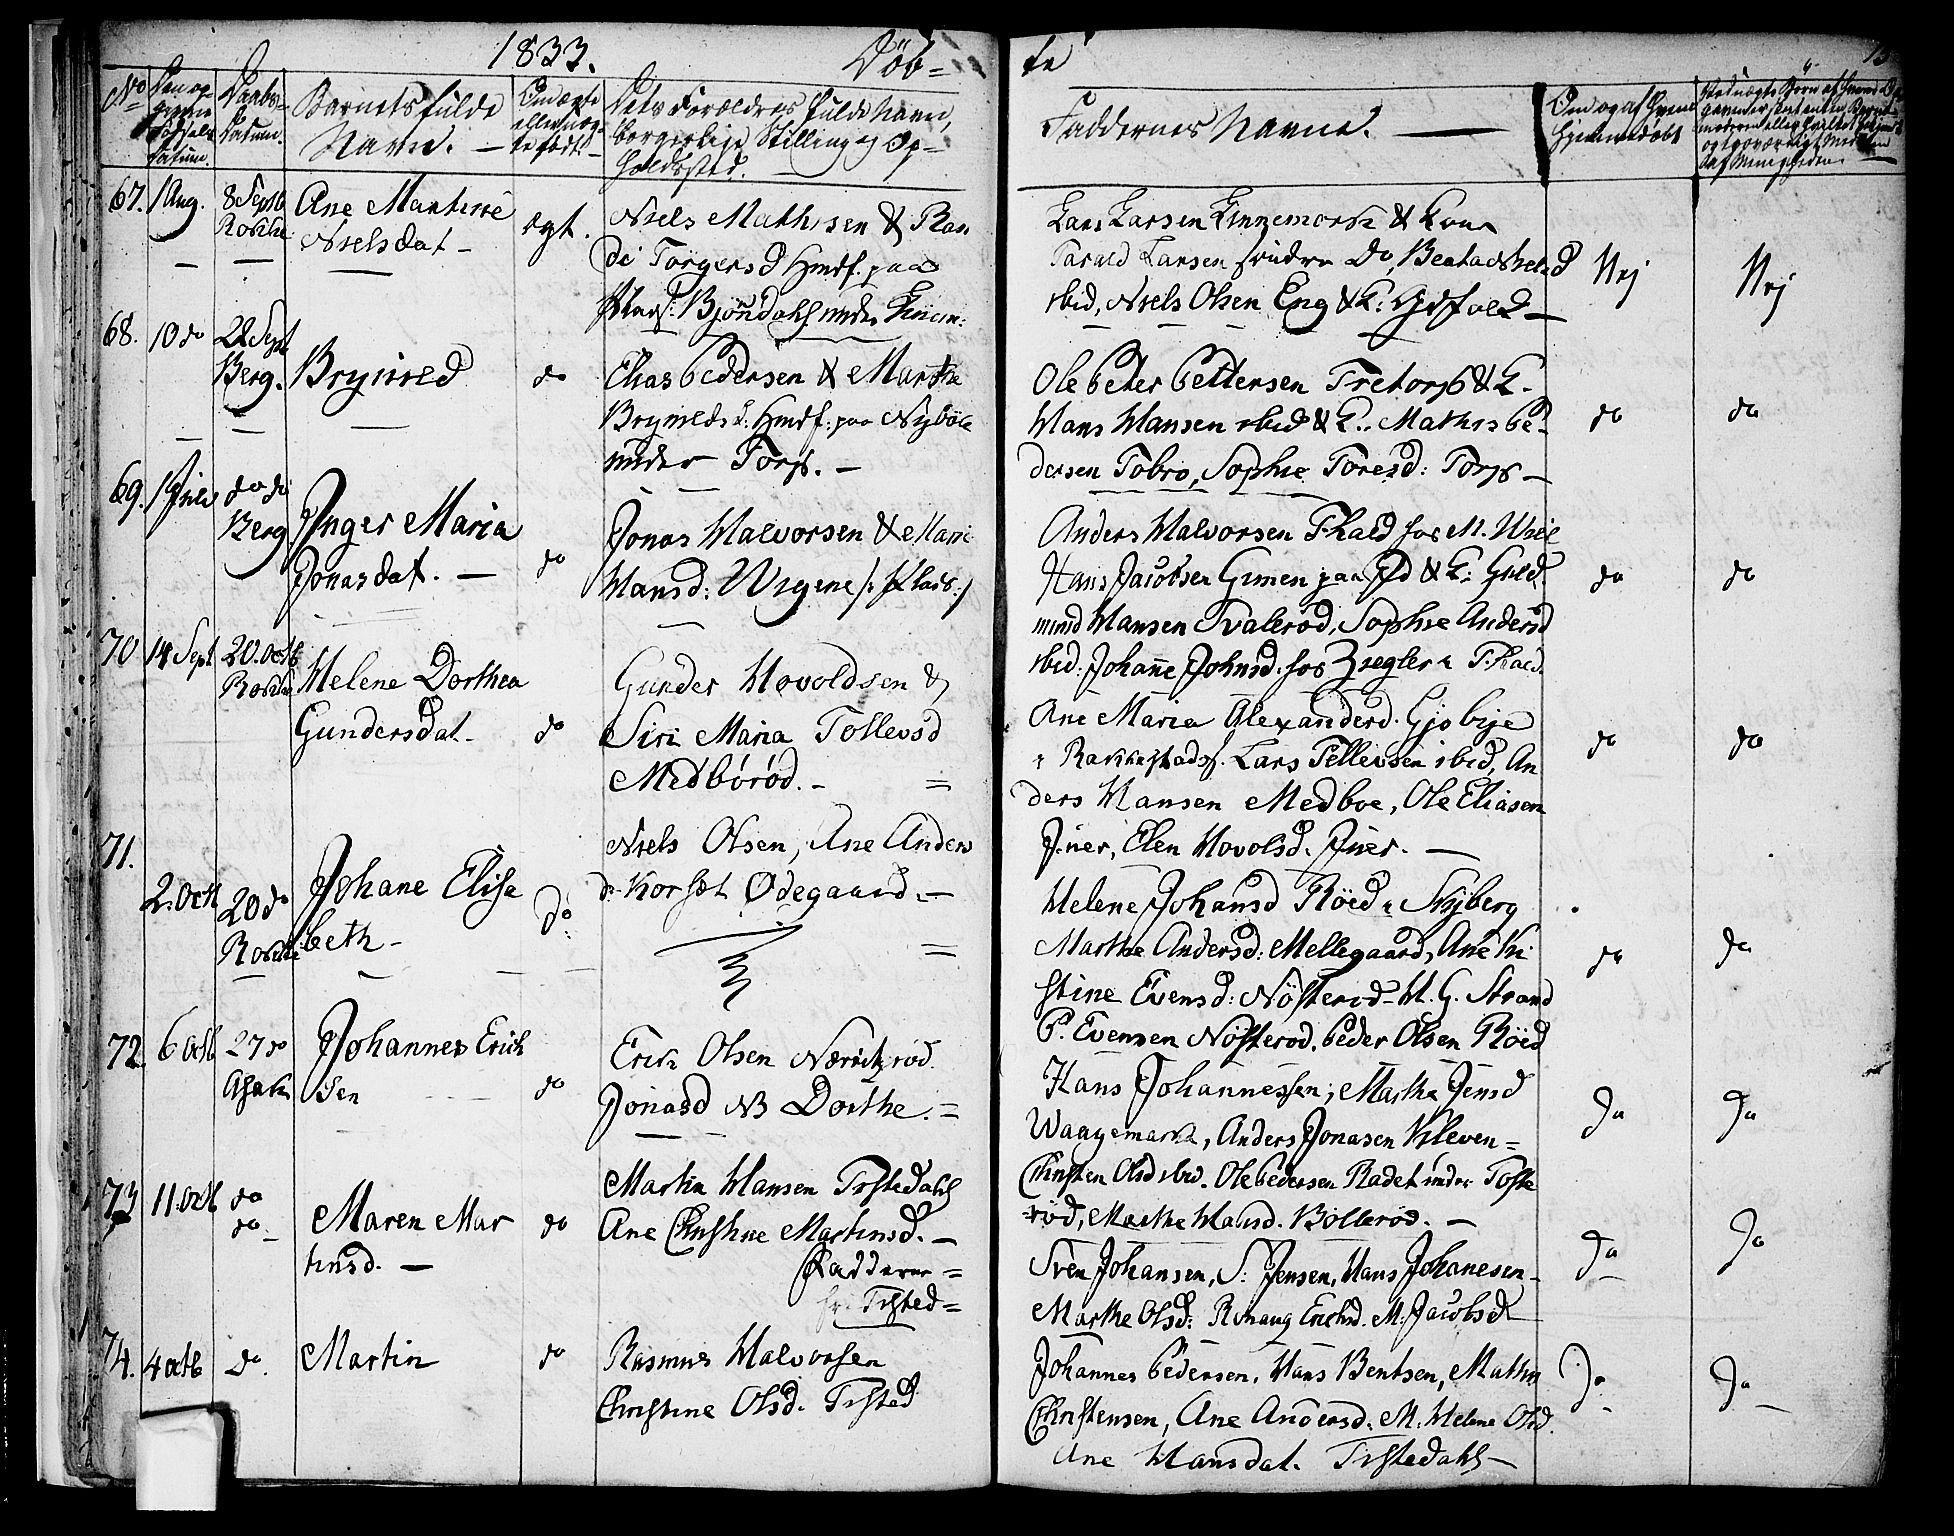 1833. Döb=
te
No
Den op-
givne
Fødsels
datum.
Daabs-
Datum.
Barnets fulde
Navn. —
Om ægte
eller uæg-
te født. —
Dets Forældres fulde Navn,
borgerlige Stilling og Op-
holdssted.
Faddernes Navne. —
Om og af Hvem
hjemmedøbt
67. 1 Aug. 8 Septb Ane Martine ægt. Niels Mathisen & Ran
Nielsdat —
di Torgersd Hmdf. paa
Plads: Björndahl under
Lars Larsen & Kone
Tarald Larsen søndre Do,
ibid, Niels Olsen Eng & K:
Nej Nej
68. 10 do 22 Sept Brynild do Elias Pedersen & Marthe
Berg.
Brynilds d: Hmdf: paa Nyböle
under Torp. —
Ole Peter Pettersen Tretorp & K.
Hans Hansen ibid & K.. Mathis Pe-
dersen Tobro, Sophie Toresd: Torp —
do do
69. 1 Juli do do Inger Maria do Jonas Halvorsen & Marie
Berg Jonasdat. —
Hansd: Wigene /: Plads :/
Anders Halvorsen F.hald hos M.
Hans Jacobsen Gimen paa & K: Guld
mund Hansen Tvalerød, Sophie Andersd
ibid. Johanne Johnsd. hos Ziegler i F.hald.
do do
70 14 Sept 20. Octb Helene Dorthea do Gunder Hovoldsen &
Gundersdat. Siri Maria Tollevsd
Medbörød. —
Ane Maria Alexandersd.
i Lars Tellevsen ibid, An
ders Hansen Medboe, Ole Eliasen
Iuer, Elen Hovolsd. Iuer. —
do do
71. 2. Octb 20 do Johane Elisa do: Niels Olsen, Ane Anders
beth — d: Korsæt Ødegaard. —
Helene Johansd Röed i Nyberg
Marthe Andersd: Mellegaard, Ane Ki
stine Evensd: Nösterød — H. G. Strand
P. Evensen Nösterod, Peder Olsen Röed
do do
72. 6 Octb 27 do Johannes Erich do Erik Olsen
sen Jonasd NB Dorthe. =
Hans Johannessen; Marthe Jensd
Waagemark, Anders Jonasen Kleven =
Christen Olsd ibid. Ole Pedersen Radet under Toste
rød, Marthe Hansd. Böllerød. —
do do
73 11. Octb do Maren Mar do Martin Hansen Tistedahl
do — tinsd. — Ane Christine Martinsd. —
Faddere =
Tisted =
Sven Johansen, S: Jensen, Hans Johanesen —
Marthe Olsd: Erichsd. M: Jacobsd
do do
74. 4 Octb do. Martin do Rasmus Halvorsen
Christine Olsd. Tisted
Johannes Pedersen, Hans Bentsen, Mathis
Christensen, Ane Andersd. M. Helene Olsd.
Ane Hansdat. Tistedahl —
do do